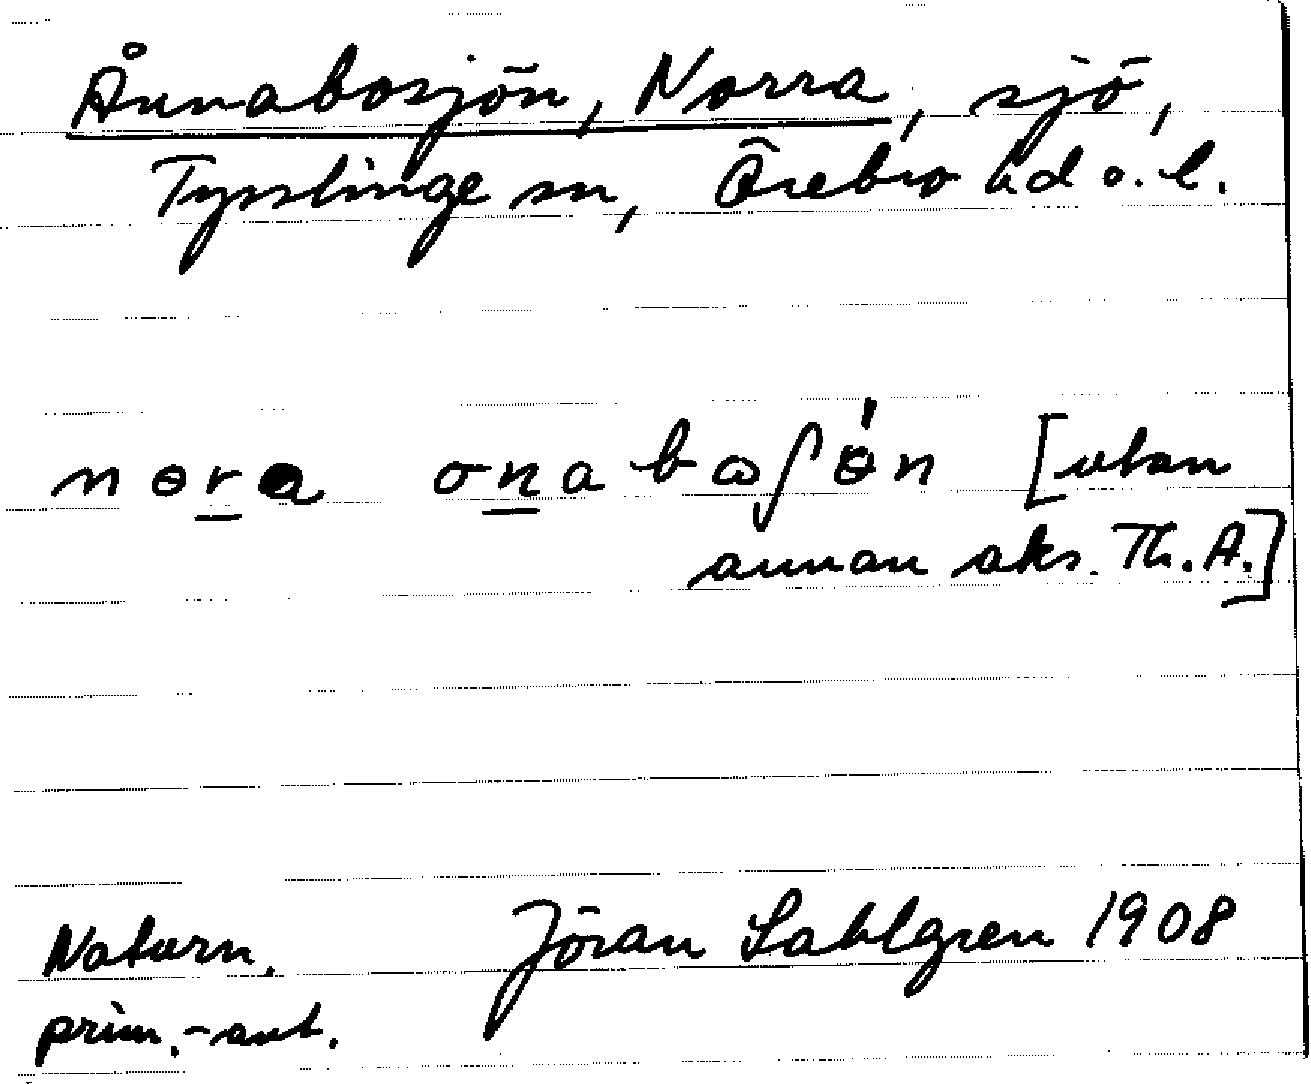 Ånnabosjön, Norra, sjö,
Tysslinge sn, Örebro hd ö. l.
nɵra ơnabɷʃɵ́n [utan
annan aks. Th. A.]
Naturn. Jöran Sahlgren 1908
prim.-ant.